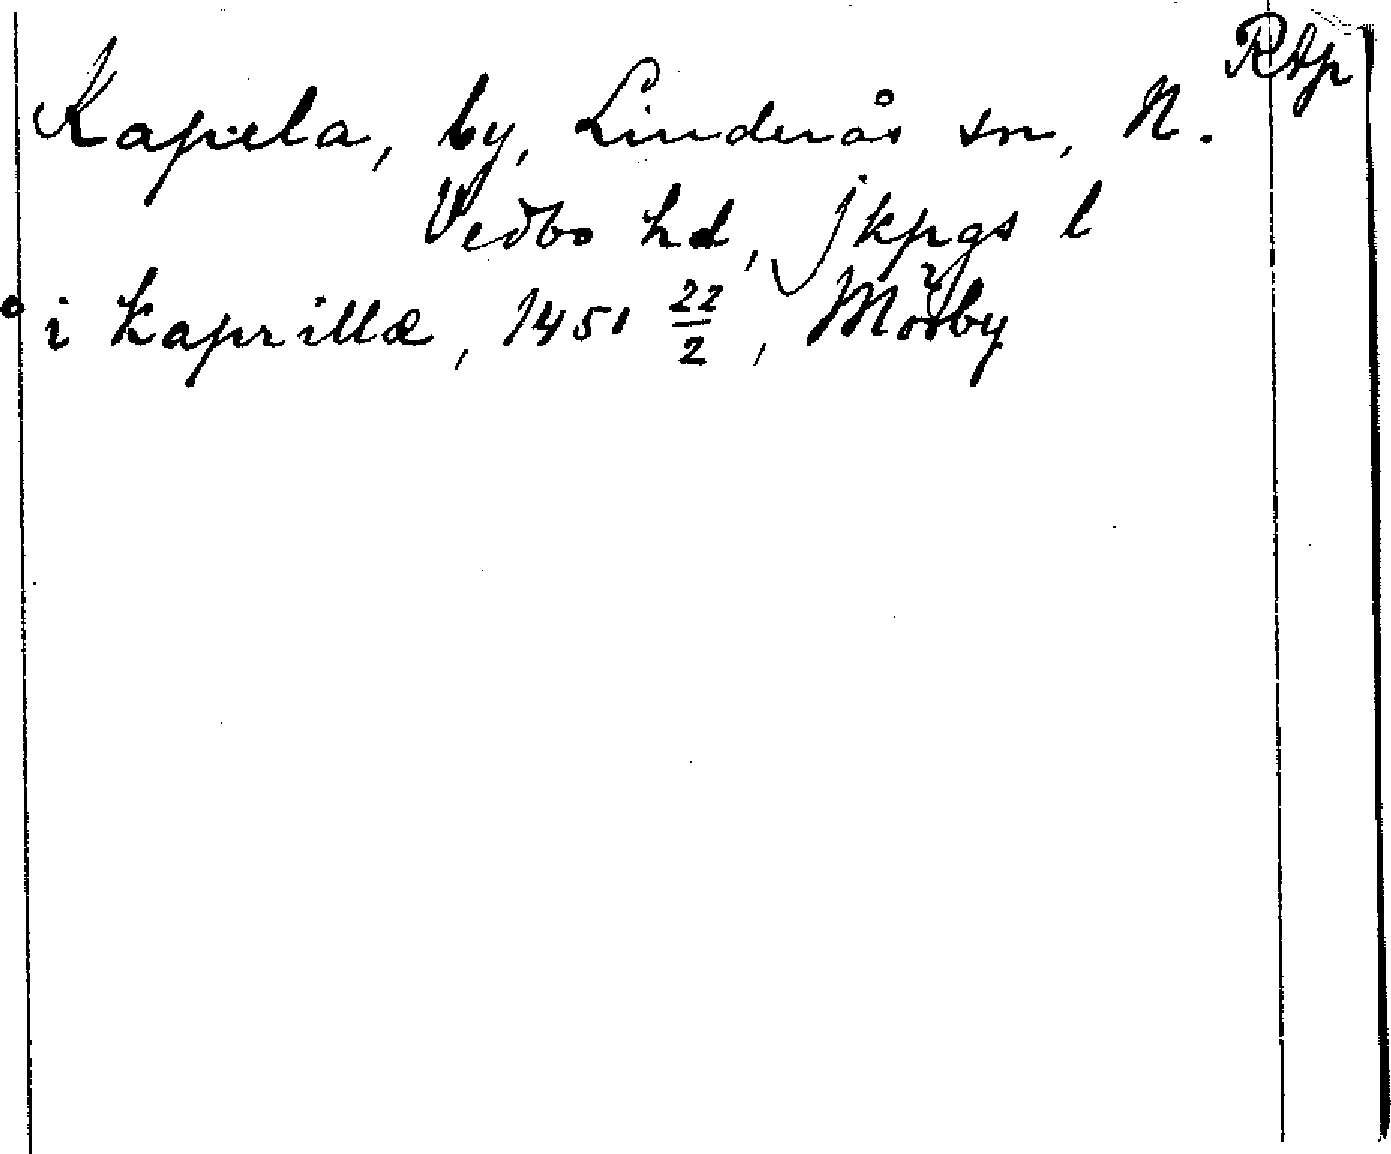 RAp
Kapela, by, Linderås sn, N.
Vedbo hd, Jkpgs l
i kaprillæ, 1451 22/2, Mörby